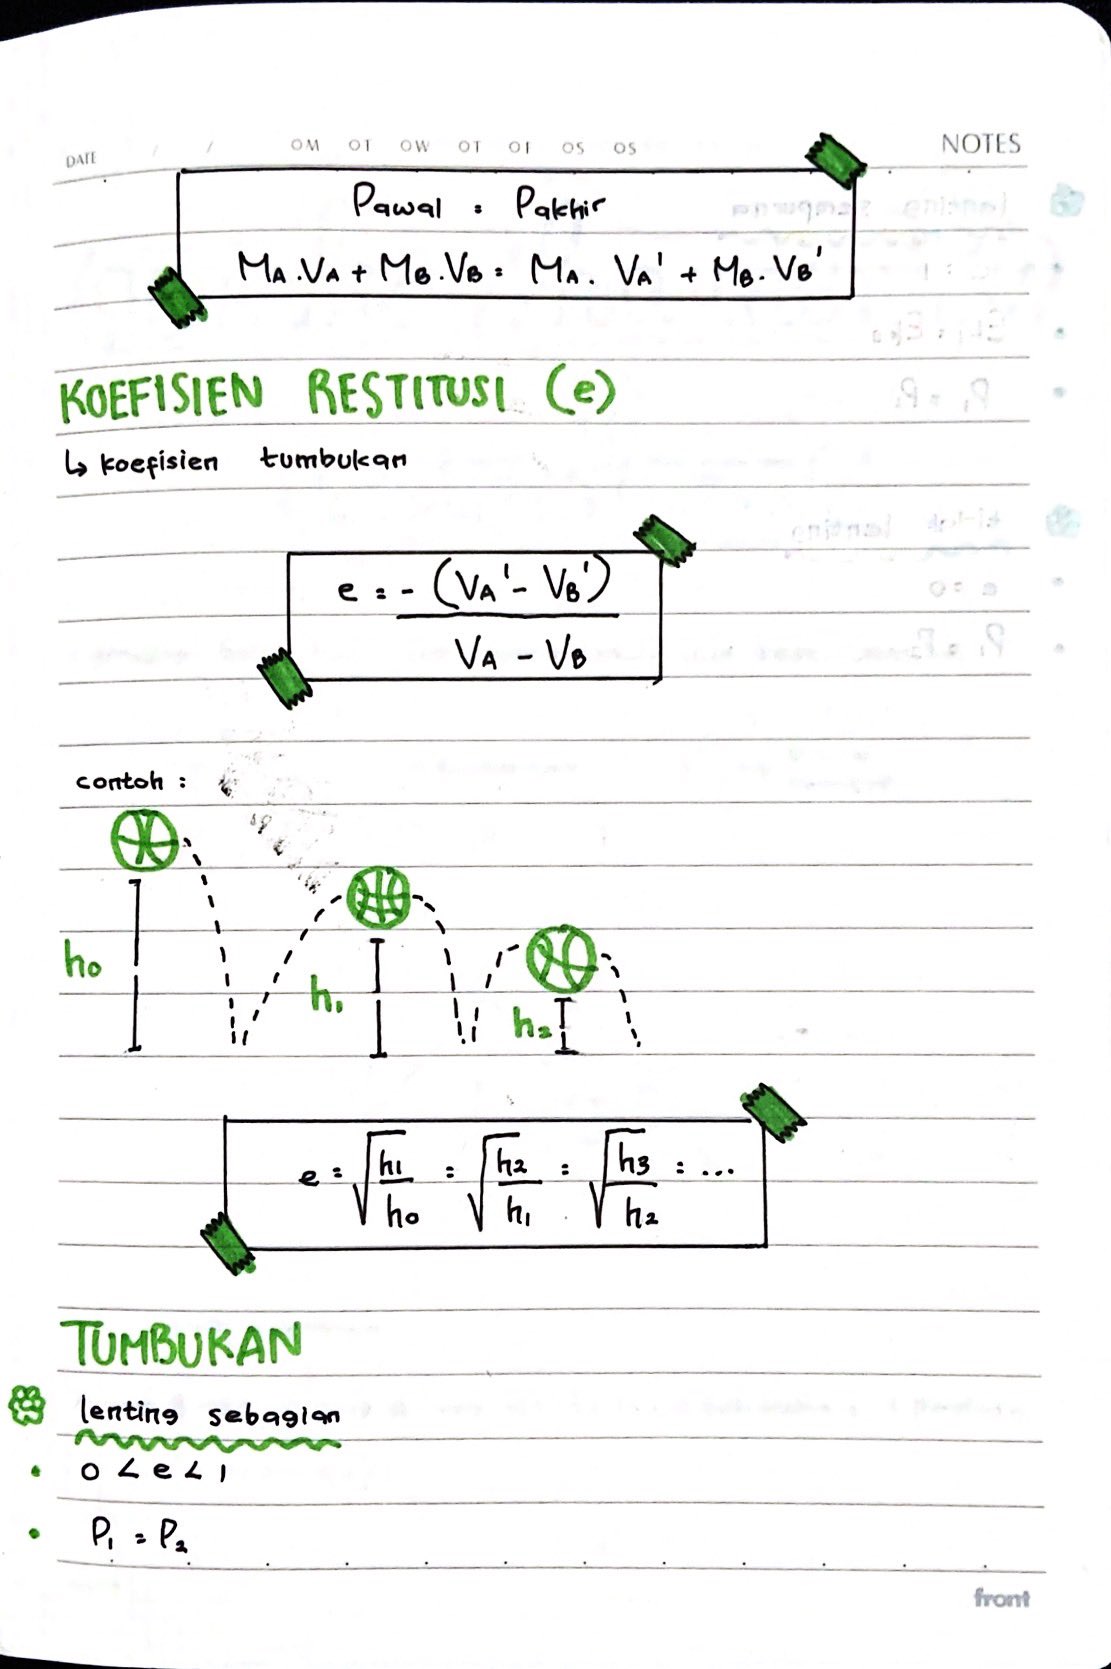 DATE / / OM OT OW OT OF OS OS NOTES
Pawal = Pakhir
MA . VA + MB . VB = MA . VA' + MB . VB'
KOEFISIEN RESTITUSI (e)
↳ koefisien tumbukan
e = - (VA' - VB')
VA - VB
contoh :
h0
h1
h2
e = √h1/h0 = √h2/h1 = √h3/h2 = ...
TUMBUKAN
lenting sebagian
• 0 < e < 1
• P1 = P2
front